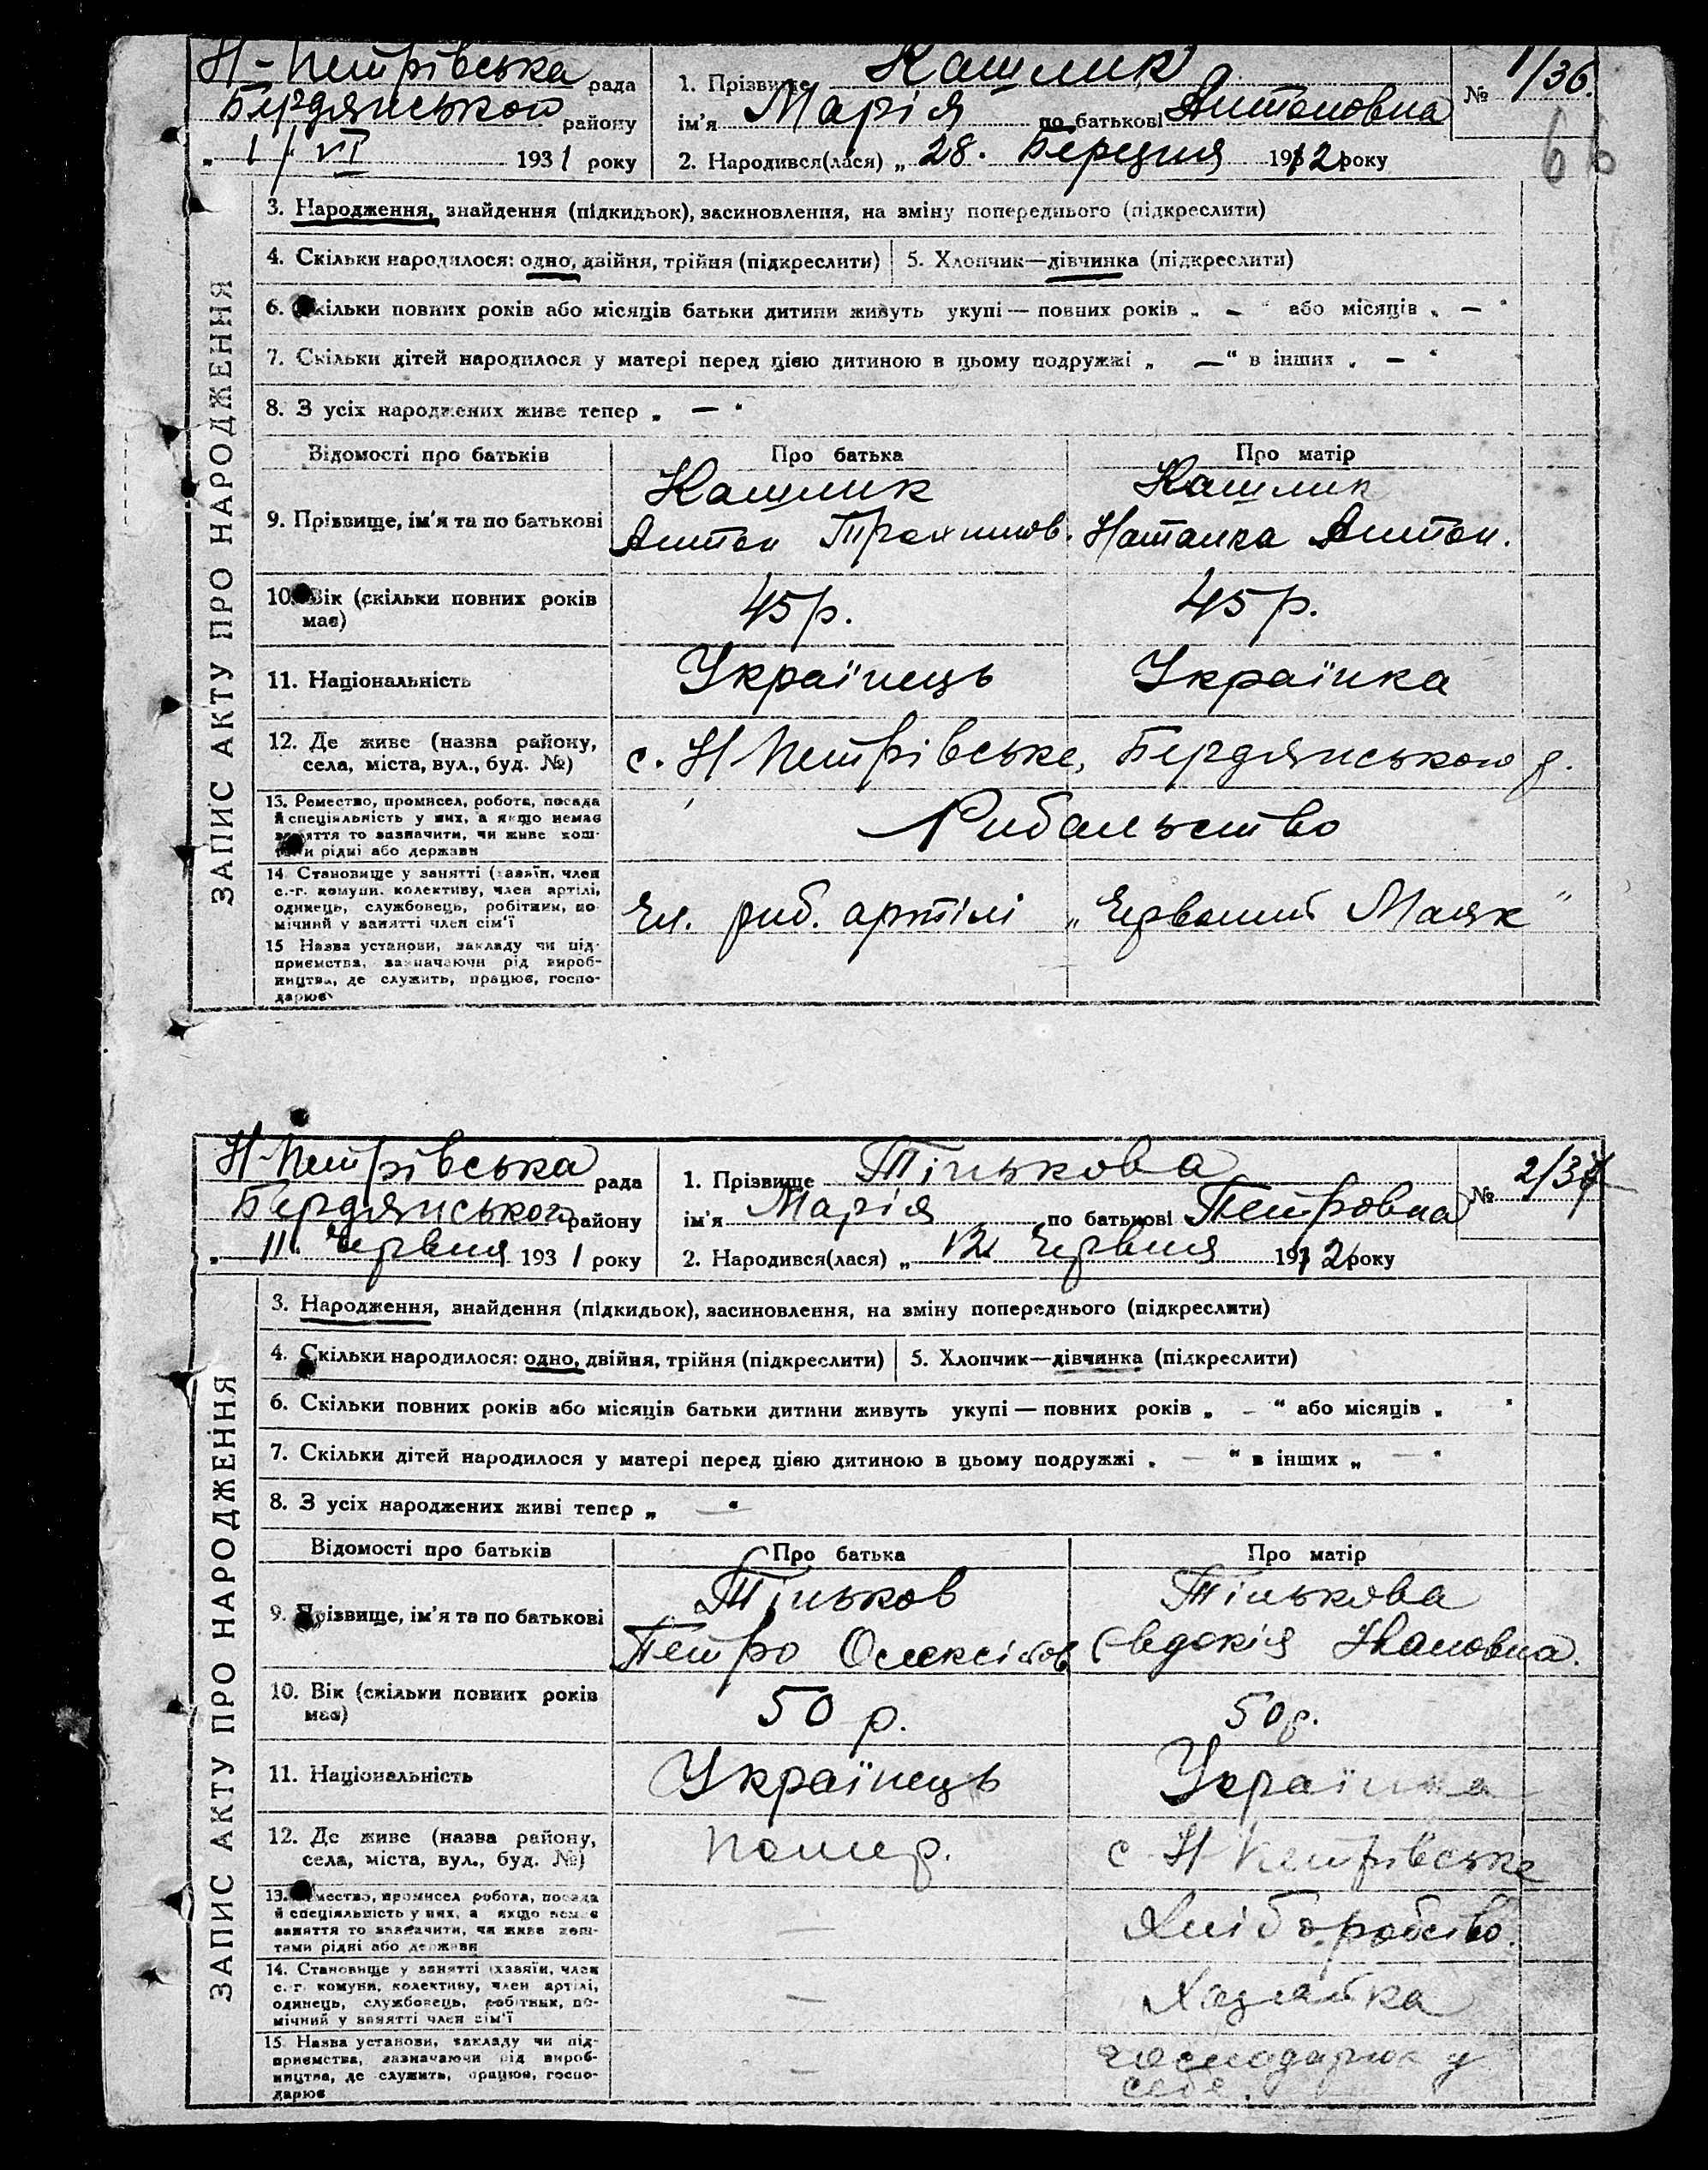 Н-Петрівська рада
Бердянського району
„ 1/VI 1931 року
1. Прізвище Кашлик
ім'я Марія по батькові Антоновна
2. Народився(лася) „ 28. Березня 1912 року
№ 1/36.
66
ЗАПИС АКТУ ПРО НАРОДЖЕННЯ
3. Народження, знайдення (підкидьок), засиновлення, на зміну попереднього (підкреслити)
4. Скільки народилося: одно, двійня, трійня (підкреслити) 5. Хлопчик—дівчинка (підкреслити)
6. Скільки повних років або місяців батьки дитини живуть укупі — повних років „ — “ або місяців „ — “
7. Скільки дітей народилося у матері перед цією дитиною в цьому подружжі „ — “ в інших „ — “
8. З усіх народжених живе тепер „ — “
Відомості про батьків Про батька Про матір
9. Прізвище, ім'я та по батькові
Кашлик Кашлик
Антон Трохимов. Наталка Антон.
10. Вік (скільки повних років має)
45 р. 45 р.
11. Національність Українець Українка
12. Де живе (назва району, села, міста, вул., буд. №)
с. Н Петрівське, Бердянського р.
13. Ремество, промисел, робота, посада
й спеціяльність у них, а якщо немає
заняття то зазначити, чи живе кош-
тами рідні або держави
Рибальство
14 Становище у занятті (хазяїн, член
с.-г. комуни, колективу, член артілі,
одинець, службовець, робітник, по-
мічний у занятті член сім'ї
Чл. риб. артілі „Червоний Маяк“
15 Назва установи, закладу чи під-
приємства, зазначаючи рід вироб-
ництва, де служить, працює, госпо-
дарює
Н-Петрівська рада
Бердянського району
„ 11. Червня 1931 року
1. Прізвище Тінькова
ім'я Марія по батькові Петровна
2. Народився(лася) „ 12 Червня 1912 року
№ 2/37
ЗАПИС АКТУ ПРО НАРОДЖЕННЯ
3. Народження, знайдення (підкидьок), засиновлення, на зміну попереднього (підкреслити)
4. Скільки народилося: одно, двійня, трійня (підкреслити) 5. Хлопчик—дівчинка (підкреслити)
6. Скільки повних років або місяців батьки дитини живуть укупі — повних років „ — “ або місяців „ “
7. Скільки дітей народилося у матері перед цією дитиною в цьому подружжі „ — “ в інших „ — “
8. З усіх народжених живі тепер „ — “
Відомості про батьків Про батька Про матір
9. Прізвище, ім'я та по батькові
Тіньков Тінькова
Петро Олексійов Євдокія Івановна.
10. Вік (скільки повних років має)
50 р. 50 р.
11. Національність Українець Українка
12. Де живе (назва району, села, міста, вул., буд. №)
Помер. с Н Петрівське
13. Ремество, промисел робота, посада
й спеціяльність у них, а якщо немає
заняття то зазначити, чи живе кош-
тами рідні або держави
— Хліборобство.
14. Становище у занятті (хазяїн, член
с.-г. комуни, колективу, член артілі,
одинець, службовець, робітник, по-
мічний у занятті член сім'ї
— Хазяйка
15. Назва установи, закладу чи під-
приємства, зазначаючи рід вироб-
ництва, де служить, працює, госпо-
дарює
— господарює у
себе.